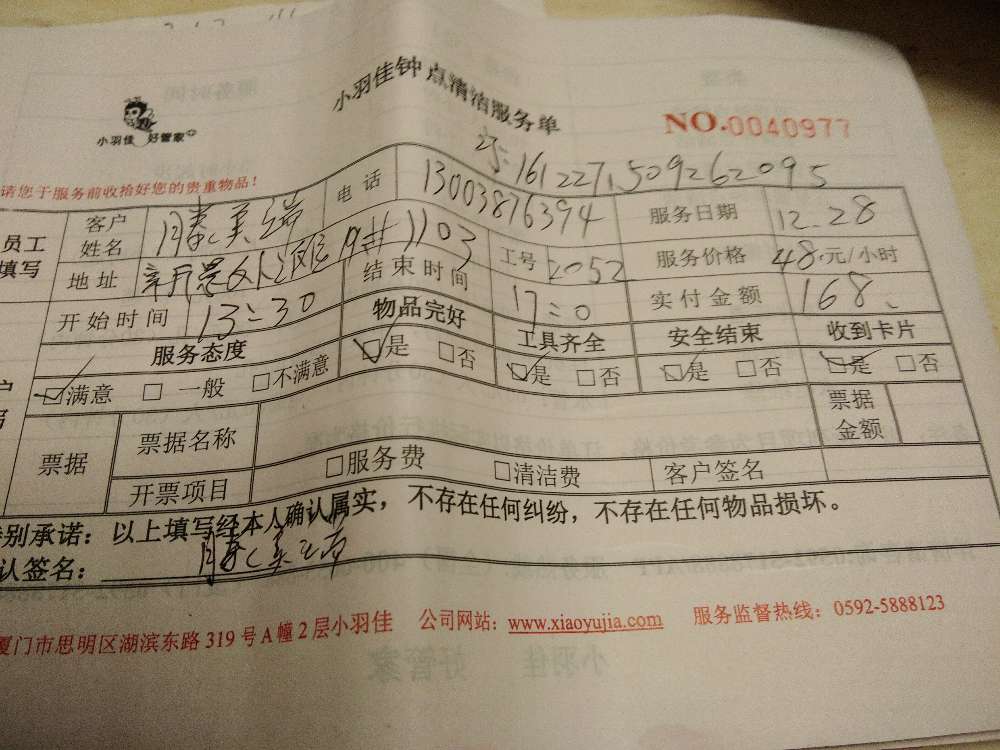 小羽佳钟点清洁服务单
小羽佳 好管家
NO.0040977
1612271509262095
请您于服务前收拾好您的贵重物品！
员工填写 客户姓名 滕美瑞 电话 13003876394 服务日期 12.28
地址 19# 1103 工号 2052 服务价格 48.元/小时
开始时间 13:30 结束时间 17:0 实付金额 168.
服务态度 物品完好 工具齐全 安全结束 收到卡片
☑满意 □一般 □不满意 ☑是 □否 ☑是 □否 ☑是 □否 ☑是 □否
票据 票据名称 票据金额
开票项目 □服务费 □清洁费 客户签名
别承诺：以上填写经本人确认属实，不存在任何纠纷，不存在任何物品损坏。
认签名：滕美瑞
厦门市思明区湖滨东路 319 号 A 幢 2 层小羽佳 公司网站：www.xiaoyujia.com 服务监督热线：0592-5888123